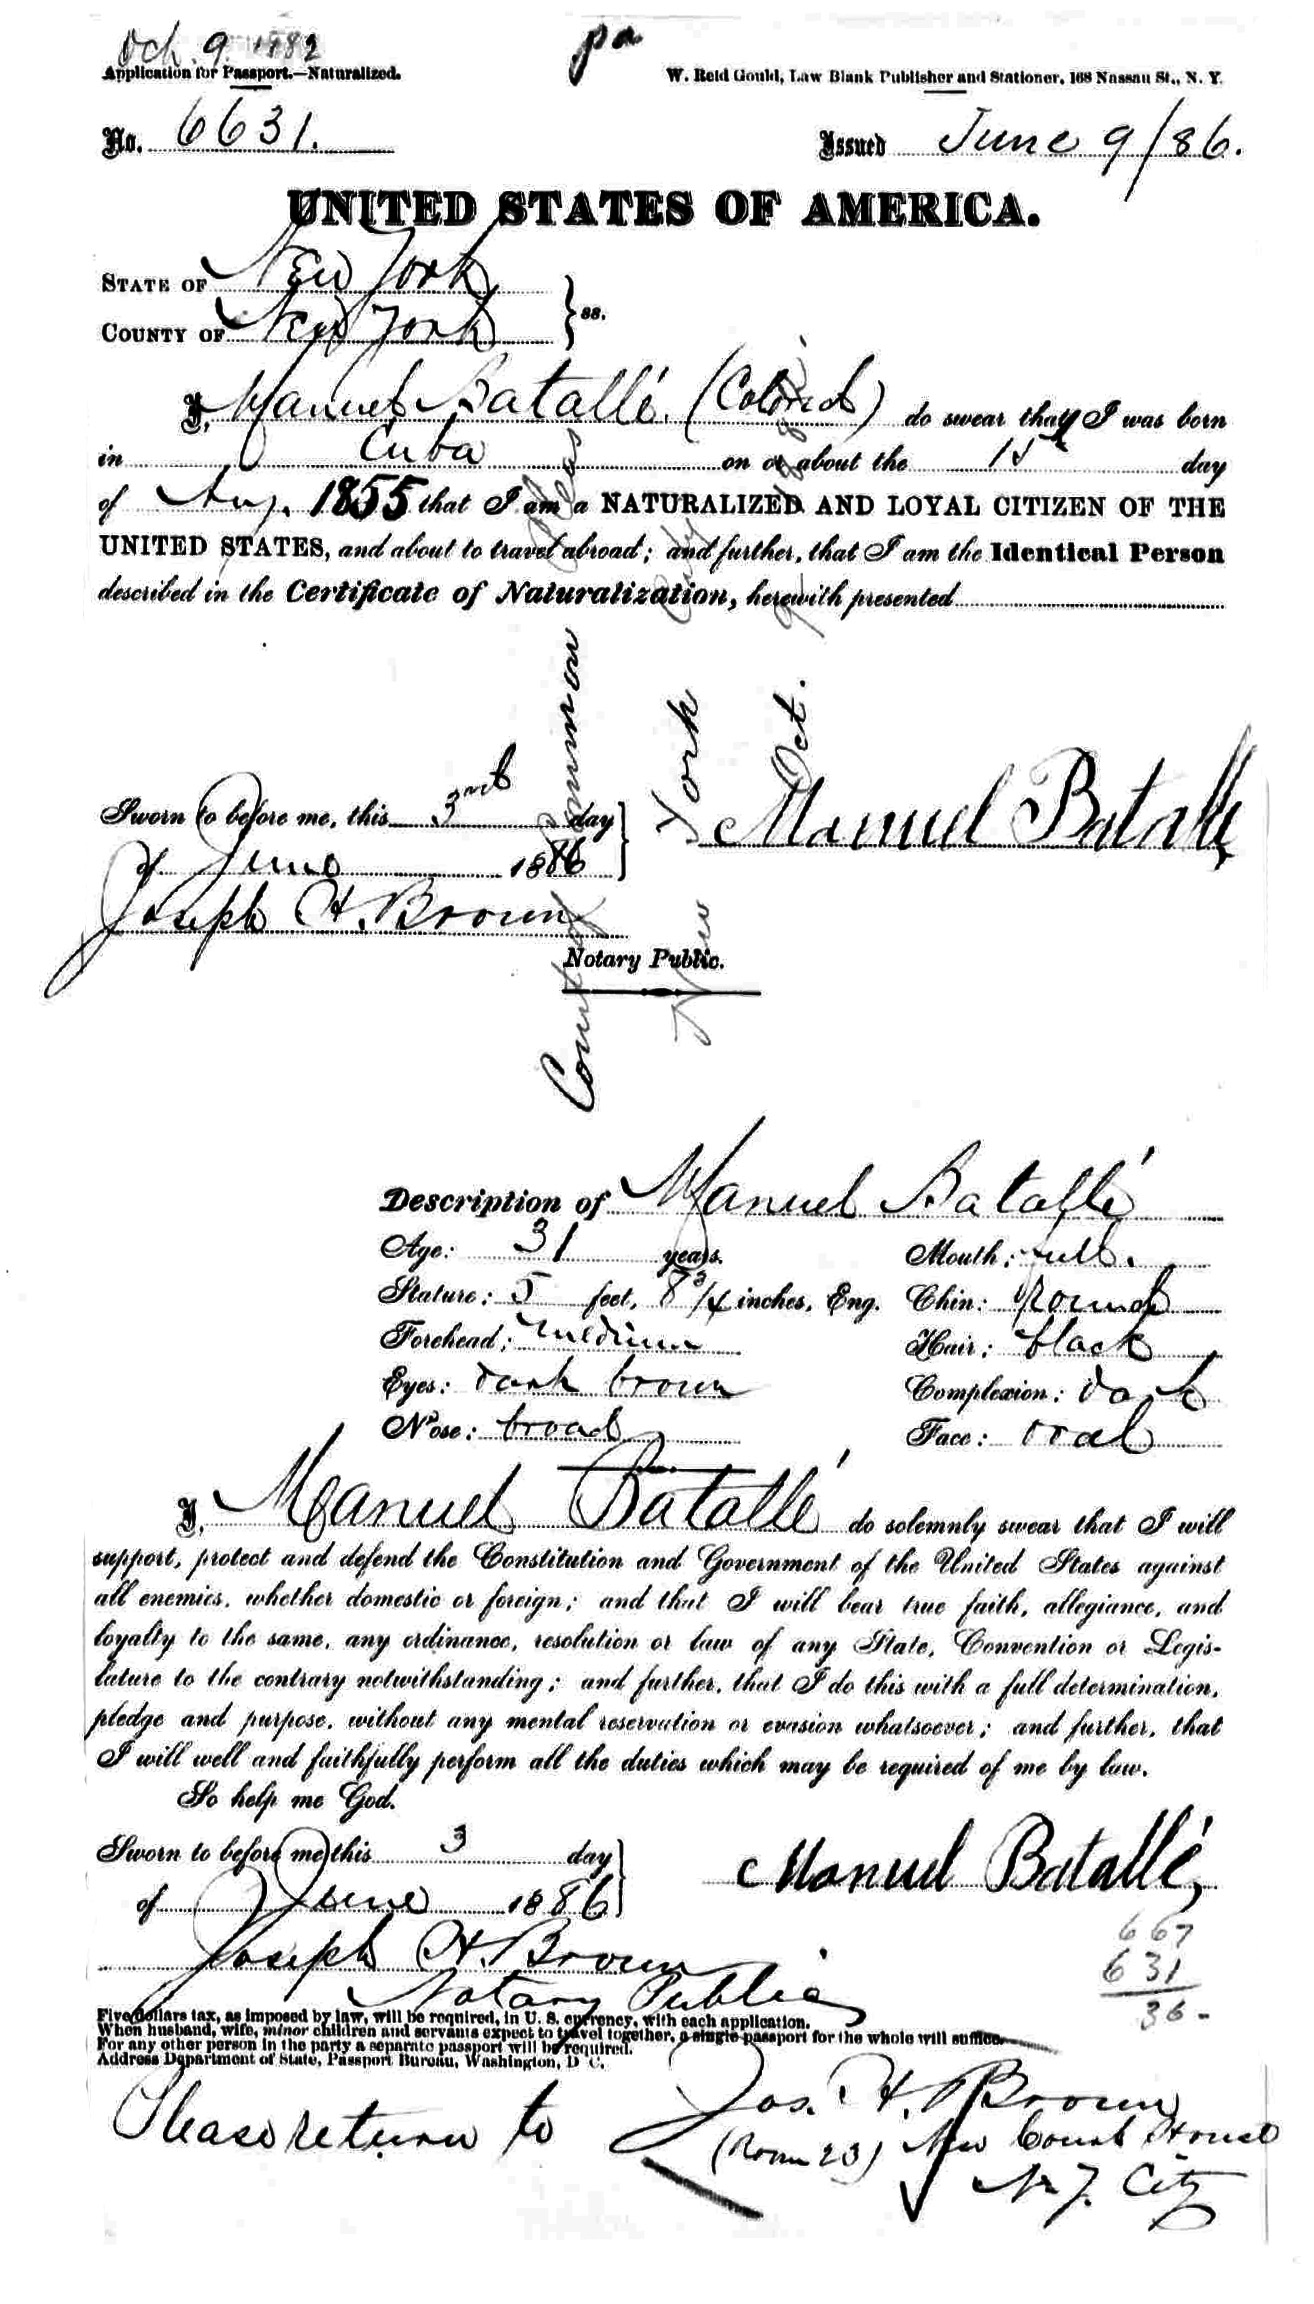 Oct. 9. 1882
pa
Application for Passport.—Naturalized.
W. Reid Gould, Law Blank Publisher and Stationer, 168 Nassau St., N. Y.
No. 6631.
Issued June 9/86.
UNITED STATES OF AMERICA.
STATE OF New York
COUNTY OF New York } ss.
I, Manuel Batallé. (Colored) do swear that I was born
in Cuba on or about the 15 day
of Aug. 1855 that I am a NATURALIZED AND LOYAL CITIZEN OF THE
UNITED STATES, and about to travel abroad; and further, that I am the Identical Person
described in the Certificate of Naturalization, herewith presented
Court of Common Pleas
New York City
Oct. 9/1882
Sworn to before me, this 3rd day
of June 1886
Manuel Batallé
Joseph H. Brown
Notary Public.
Description of Manuel Batallé
Age: 31 years.
Mouth: full.
Stature: 5 feet, 8 3/4 inches, Eng.
Chin: round
Forehead: medium
Hair: black
Eyes: dark brown
Complexion: dark
Nose: broad
Face: oval
I, Manuel Batallé do solemnly swear that I will
support, protect and defend the Constitution and Government of the United States against
all enemies, whether domestic or foreign; and that I will bear true faith, allegiance, and
loyalty to the same, any ordinance, resolution or law of any State, Convention or Legis-
lature to the contrary notwithstanding; and further, that I do this with a full determination,
pledge and purpose, without any mental reservation or evasion whatsoever; and further, that
I will well and faithfully perform all the duties which may be required of me by law.
So help me God.
Sworn to before me this 3 day
of June 1886
Manuel Batallé,
Joseph H. Brown
Notary Public
667
631
36-
Five dollars tax, as imposed by law, will be required, in U. S. currency, with each application.
When husband, wife, minor children and servants expect to travel together, a single passport for the whole will suffice.
For any other person in the party a separate passport will be required.
Address Department of State, Passport Bureau, Washington, D C.
Please return to Jos. H. Brown
(Room 23) New Court House
N. Y. City